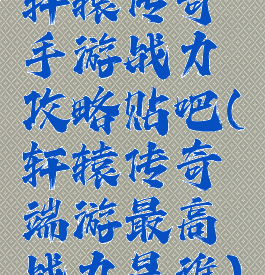 轩辕传奇
手游战力
攻略贴吧(
轩辕传奇
端游最高
战力是谁)